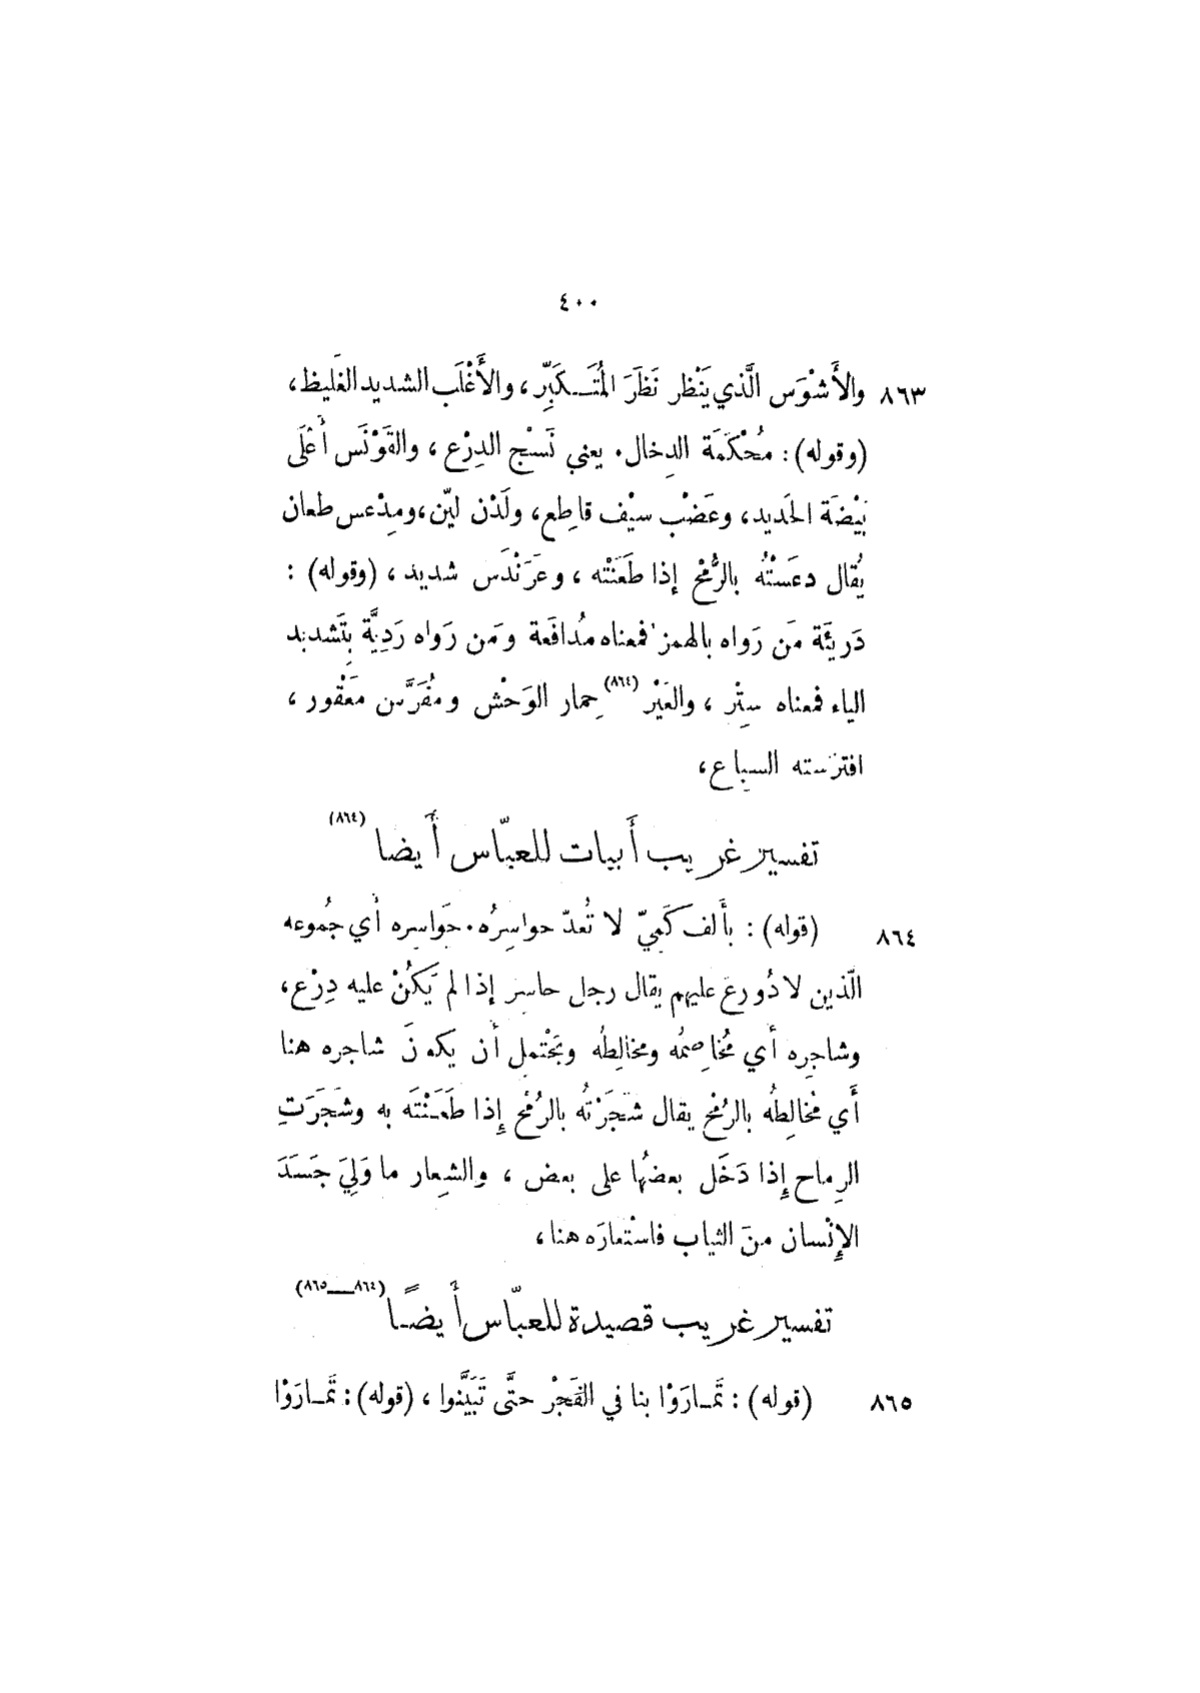 ٤٠٠
٨٦٣ والأَشْوَس الَّذي يَنْظر نَظَرَ المُتَـكَبِّر، والأَغْلَب الشديد الغَليظ،
(وقوله): مُحْكَمَة الدِخال. يعني نَسْج الدِرْع، والقَوْنَس أَعْلَى
بَيْضَة الحَديد، وعَضْب سيْف قاطِع، ولَدْن ليّن، ومِدْعس طعان
يُقال دعَسْتُه بالرُّمْح إذا طَعَنْته، وعَرَنْدَس شديد، (وقوله):
دَريئَة مَن رَواه بالهمز فمعناه مُدافَعة ومَن رَواه رَدِيَّة بِتَشديد
الياء فمعناه سِتْر، والعَيْر (٨٦٤) حِمار الوَحْش ومُفَرَّس مَعْقور،
افترسته السباع،
تفسير غريب أَبيات للعبّاس أَيضا (٨٦٤)
٨٦٤ (قوله): بأَلف كَمِيّ لا تُعدّ حواسِرُه. حَواسِره أي جُموعه
الّذين لا دُورعَ عليهم يقال رجل حاسر إذا لم يَكُنْ عليه دِرْع،
وشاجِره أي مُخاصِمُه ومخالِطُه ويَحْتمل أن يَكونَ شاجره هنا
أَي مُخالِطُه بالرُمْح يقال شَجَرْتُه بالرُمْح إِذا طَعَـنْتَه به وشَجَرَتِ
الرِماح إِذا دَخَل بعضُها على بعض، والشِعار ما وَلِيَ جَسَدَ
الإِنْسان منَ الثياب فاسْتعارَه هنا،
تفسير غريب قصيدة للعبّاس أَيضـًا (٨٦٤ــ٨٦٥)
٨٦٥ (قوله): تَمـارَوْا بنا في الفَجْر حتَّى تَبَيَّنوا، (قوله): تَمـارَوْا